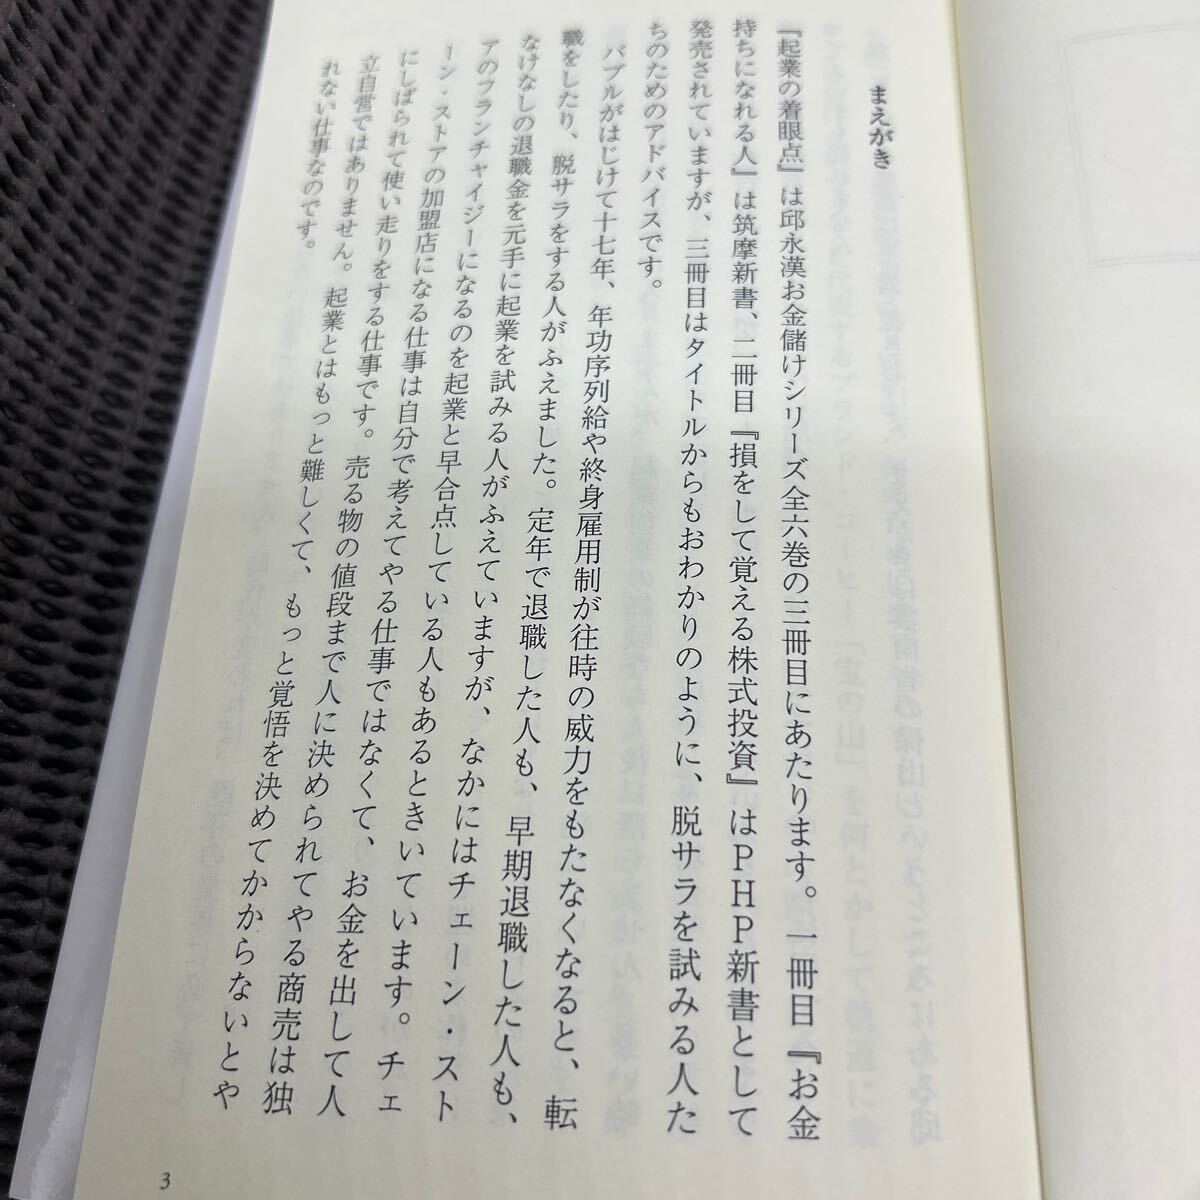 まえがき
『起業の着眼点』は邱永漢お金儲けシリーズ全六巻の三冊目にあたります。一冊目『お金
持ちになれる人』は筑摩新書、二冊目『損をして覚える株式投資』はPHP新書として
発売されていますが、三冊目はタイトルからもおわかりのように、脱サラを試みる人た
ちのためのアドバイスです。
バブルがはじけて十七年、年功序列給や終身雇用制が往時の威力をもたなくなると、転
職をしたり、脱サラをする人がふえました。定年で退職した人も、早期退職した人も、
なけなしの退職金を元手に起業を試みる人がふえていますが、なかにはチェーン・スト
アのフランチャイジーになるのを起業と早合点している人もあるときいています。チェ
ーン・ストアの加盟店になる仕事は自分で考えてやる仕事ではなくて、お金を出して人
にしばられて使い走りをする仕事です。売る物の値段まで人に決められてやる商売は独
立自営ではありません。起業とはもっと難しくて、もっと覚悟を決めてかからないとや
れない仕事なのです。
3